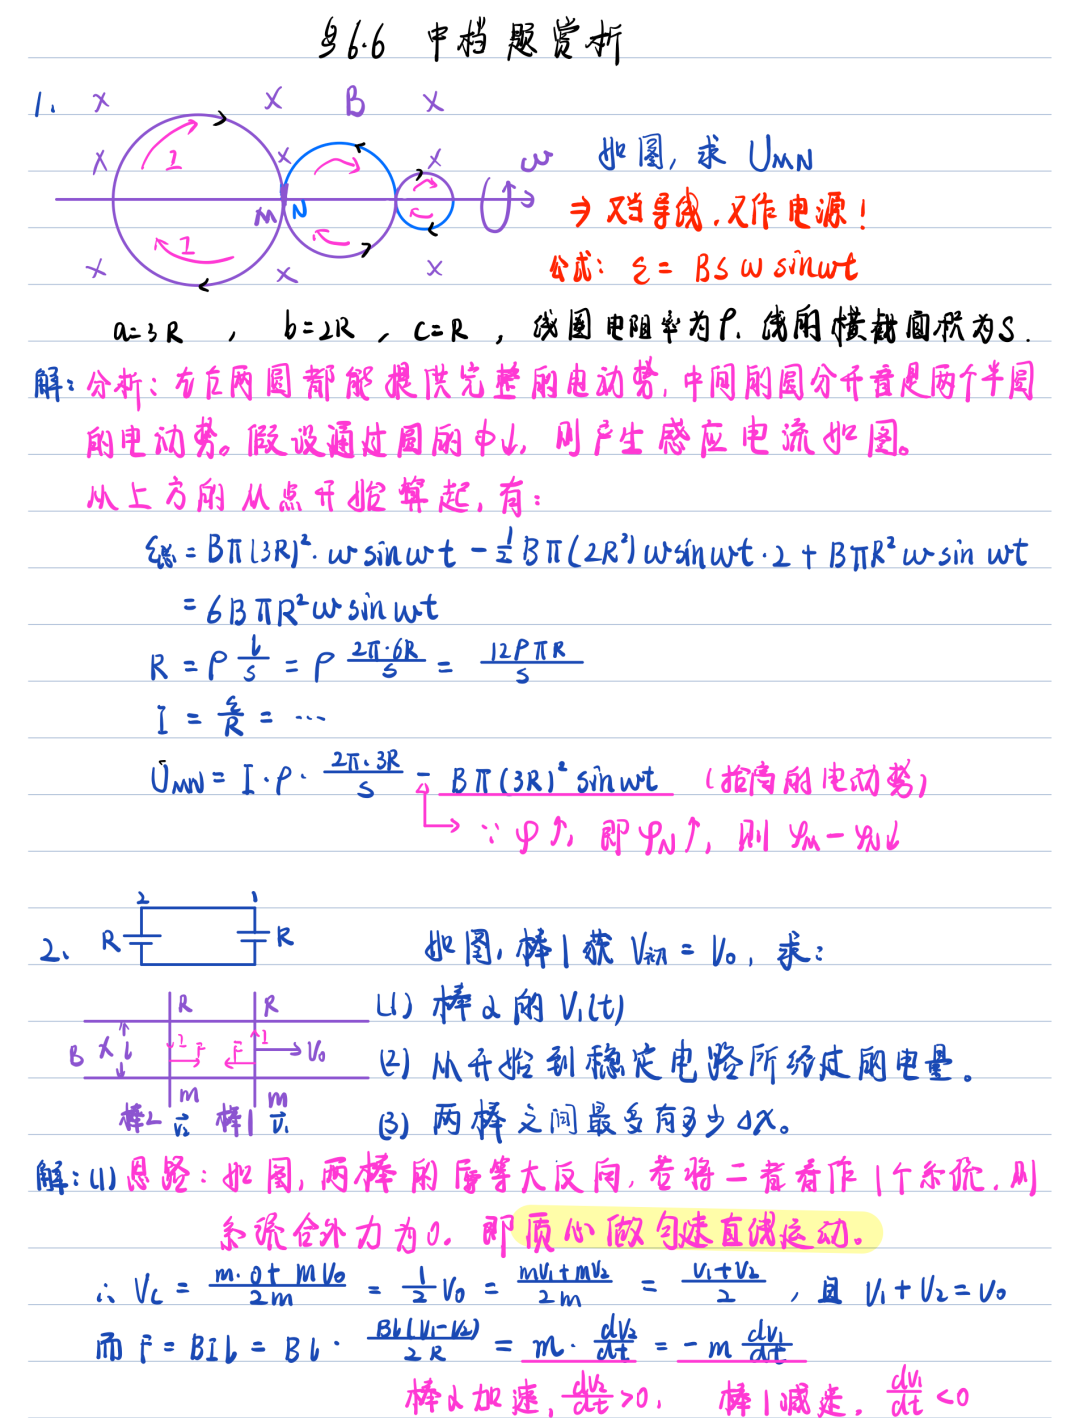 6.6 中档题赏析
1.
× × B ×
× × ×
I
M N ω
I
× × ×
如图,求 U_MN
⇒ 又当导线,又作电源!
公式: ε = BSω sinωt
a=3R , b=2R , c=R , 线圈电阻率为ρ. 线的横截面积为S.
解: 分析: 左右两圆都能提供完整的电动势,中间的圆分开看是两个半圆
的电动势。假设通过圆的中心,则产生感应电流如图。
从上方的M点开始算起,有:
ε总 = Bπ(3R)²·ωsinωt - 1/2 Bπ(2R²)ωsinωt·2 + BπR²ωsinωt
= 6BπR²ωsinωt
R = ρ l/S = ρ 2π·6R/S = 12ρπR/S
I = ε/R = ···
U_MN = I·ρ· 2π·3R/S - Bπ(3R)² sinωt (抬高的电动势)
∵ φ↑, 即 φN↑, 则 φM-φN↓
2.
2 1
R R
如图,棒1获 V初 = V₀, 求:
R R
B × L I F F I V₀
m m
棒2 v₂ 棒1 v₁
(1) 棒2的 V₁(t)
(2) 从开始到稳定电路所经过的电量。
(3) 两棒之间最多有多少 Δx。
解:(1) 思路: 如图,两棒的F等大反向,若将二者看作1个系统,则
系统合外力为0. 即质心做匀速直线运动.
∴ Vc = (m·0+mV₀)/2m = 1/2 V₀ = (mV₁+mV₂)/2m = (V₁+V₂)/2 , 且 V₁+V₂=V₀
而 F = BIL = BL· BL(V₁-V₂)/2R = m· dV₂/dt = -m dV₁/dt
棒2加速, dV₂/dt >0, 棒1减速, dV₁/dt <0